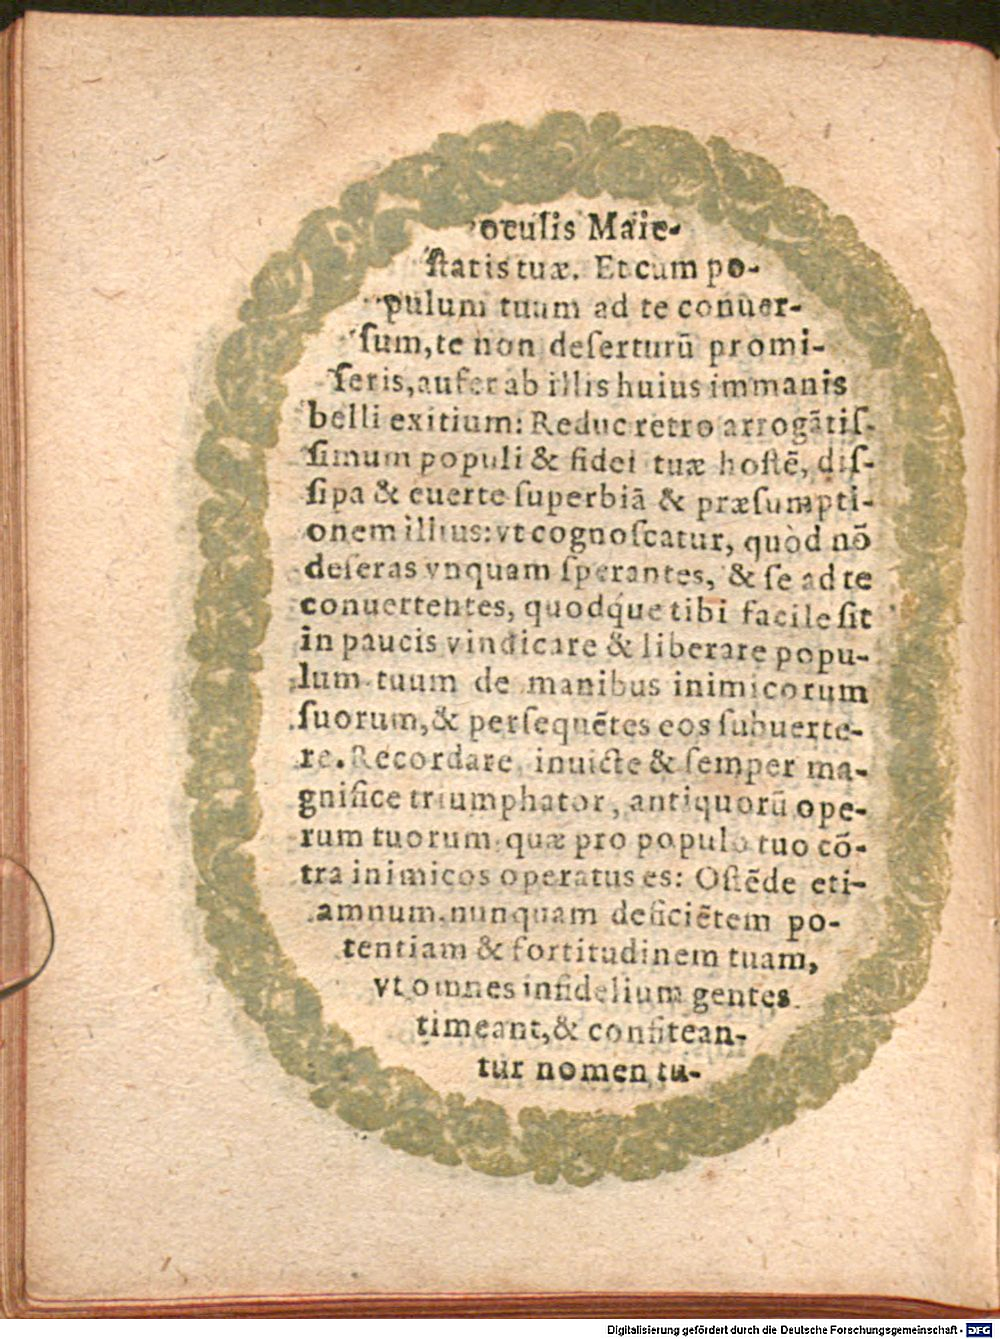 oculis Maie-
ſtatis tuæ. Et cum po-
pulum tuum ad te conuer-
ſum, te non deſerturū promi-
ſeris, aufer ab illis huius immanis
belli exitium: Reduc retro arrogātiſ-
ſimum populi & fidei tuæ hoſtē, diſ-
ſipa & euerte ſuperbiā & præſumpti-
onem illius: vt cognoſcatur, quòd nō
deſeras vnquam ſperantes, & ſe ad te
conuertentes, quodq́ue tibi facile ſit
in paucis vindicare & liberare popu-
lum tuum de manibus inimicorum
ſuorum, & perſequētes eos ſubuerte-
re. Recordare, inuicte & ſemper ma-
gnifice triumphator, antiquorū ope-
rum tuorum quæ pro populo tuo cō-
tra inimicos operatus es: Oſtēde eti-
amnum nunquam deficiētem po-
tentiam & fortitudinem tuam,
vt omnes infidelium gentes
timeant, & confitean-
tur nomen tu-
Digitalisierung gefördert durch die Deutsche Forschungsgemeinschaft - DFG